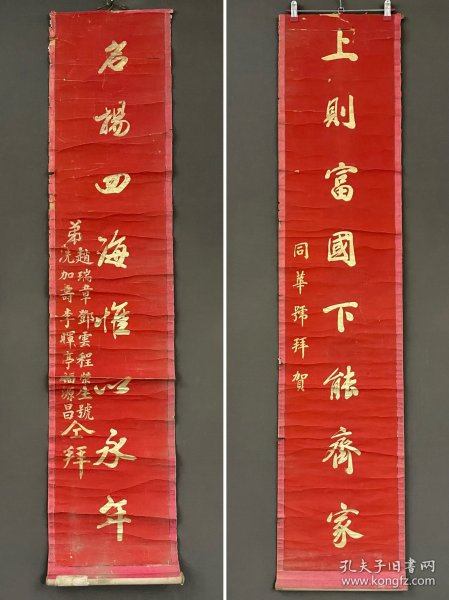 上則富國下能齊家
同華號拜賀
名揚四海惟以永年
弟
趙瑞章鄧雲程榮生號
冼加壽李暉亭福源昌
仝拜
孔夫子旧书网
www.kongfz.com